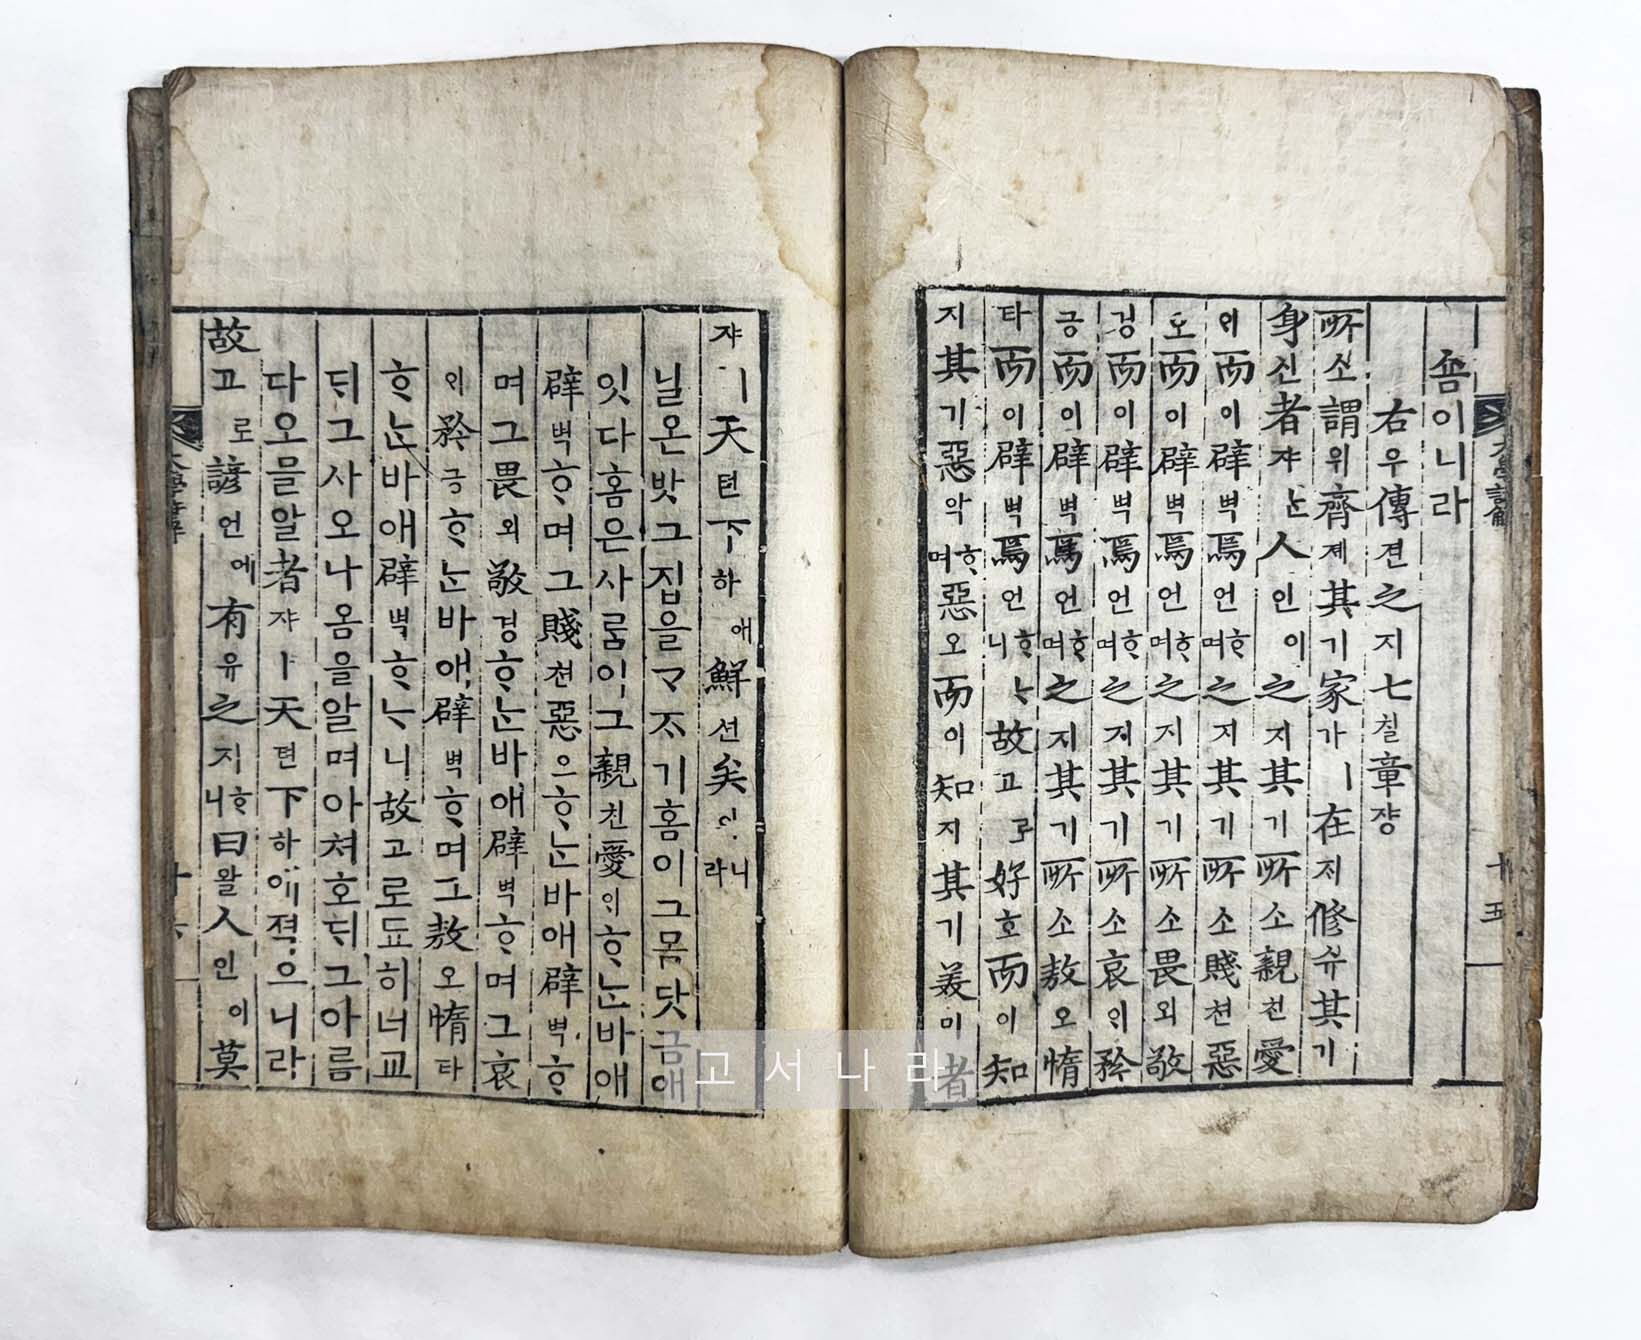 大學諺解 十五
숌이니라
右우傳뎐之지七칠章쟝
所소謂위齊졔其기家가ㅣ在ᄌᆡ修슈其기
身신者쟈ᄂᆞᆫ人인이之지其기所소親친愛
ᄋᆡ而이辟벽焉언ᄒᆞ며之지其기所소賤쳔惡
오而이辟벽焉언ᄒᆞ며之지其기所소畏외敬
경而이辟벽焉언ᄒᆞ며之지其기所소哀ᄋᆡ矜
긍而이辟벽焉언ᄒᆞ며之지其기所소敖오惰
타而이辟벽焉언ᄒᆞᄂᆞ니故고로好호而이知
지其기惡악ᄒᆞ며惡오而이知지其기美미者
쟈ㅣ天텬下하애鮮션矣의니라
닐온밧그집을ᄀᆞᄌᆞ기홈이그몸닷금애
잇다홈은사ᄅᆞᆷ이그親친愛ᄋᆡᄒᆞᄂᆞᆫ바애
辟벽ᄒᆞ며그賤쳔惡오ᄒᆞᄂᆞᆫ바애辟벽ᄒᆞ
며그畏외敬경ᄒᆞᄂᆞᆫ바애辟벽ᄒᆞ며그哀
ᄋᆡ矜긍ᄒᆞᄂᆞᆫ바애辟벽ᄒᆞ며그敖오惰타
ᄒᆞᄂᆞᆫ바애辟벽ᄒᆞᄂᆞ니故고로됴히너교
ᄃᆡ그사오나옴을알며아쳐호ᄃᆡ그아름
다오믈알者쟈ㅣ天텬下하애젹으니라
故고로諺언에有유之지ᄒᆞ니曰왈人인이莫
고서나라